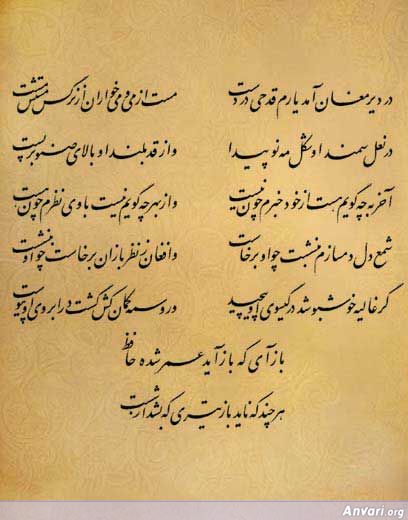 در دیر مغان آمد یارم قدحی در دست مست از می و می‌خواران از نرگس مستش مست
در نعل سمند او شکل مه نو پیدا وز قد بلند او بالای صنوبر پست
آخر به چه گویم هست از خود خبرم چون نیست وز بهر چه گویم نیست با وی نظرم چون هست
شمع دل دمسازم بنشست چو او برخاست و افغان ز نظربازان برخاست چو او بنشست
گر غالیه خوشبو شد در گیسوی او پیچید ور وسمه کمان کش گشت در ابروی او پیوست
بازآی که بازآید عمر شده حافظ
هر چند که ناید باز تیری که بشد از شست
Anvari.org